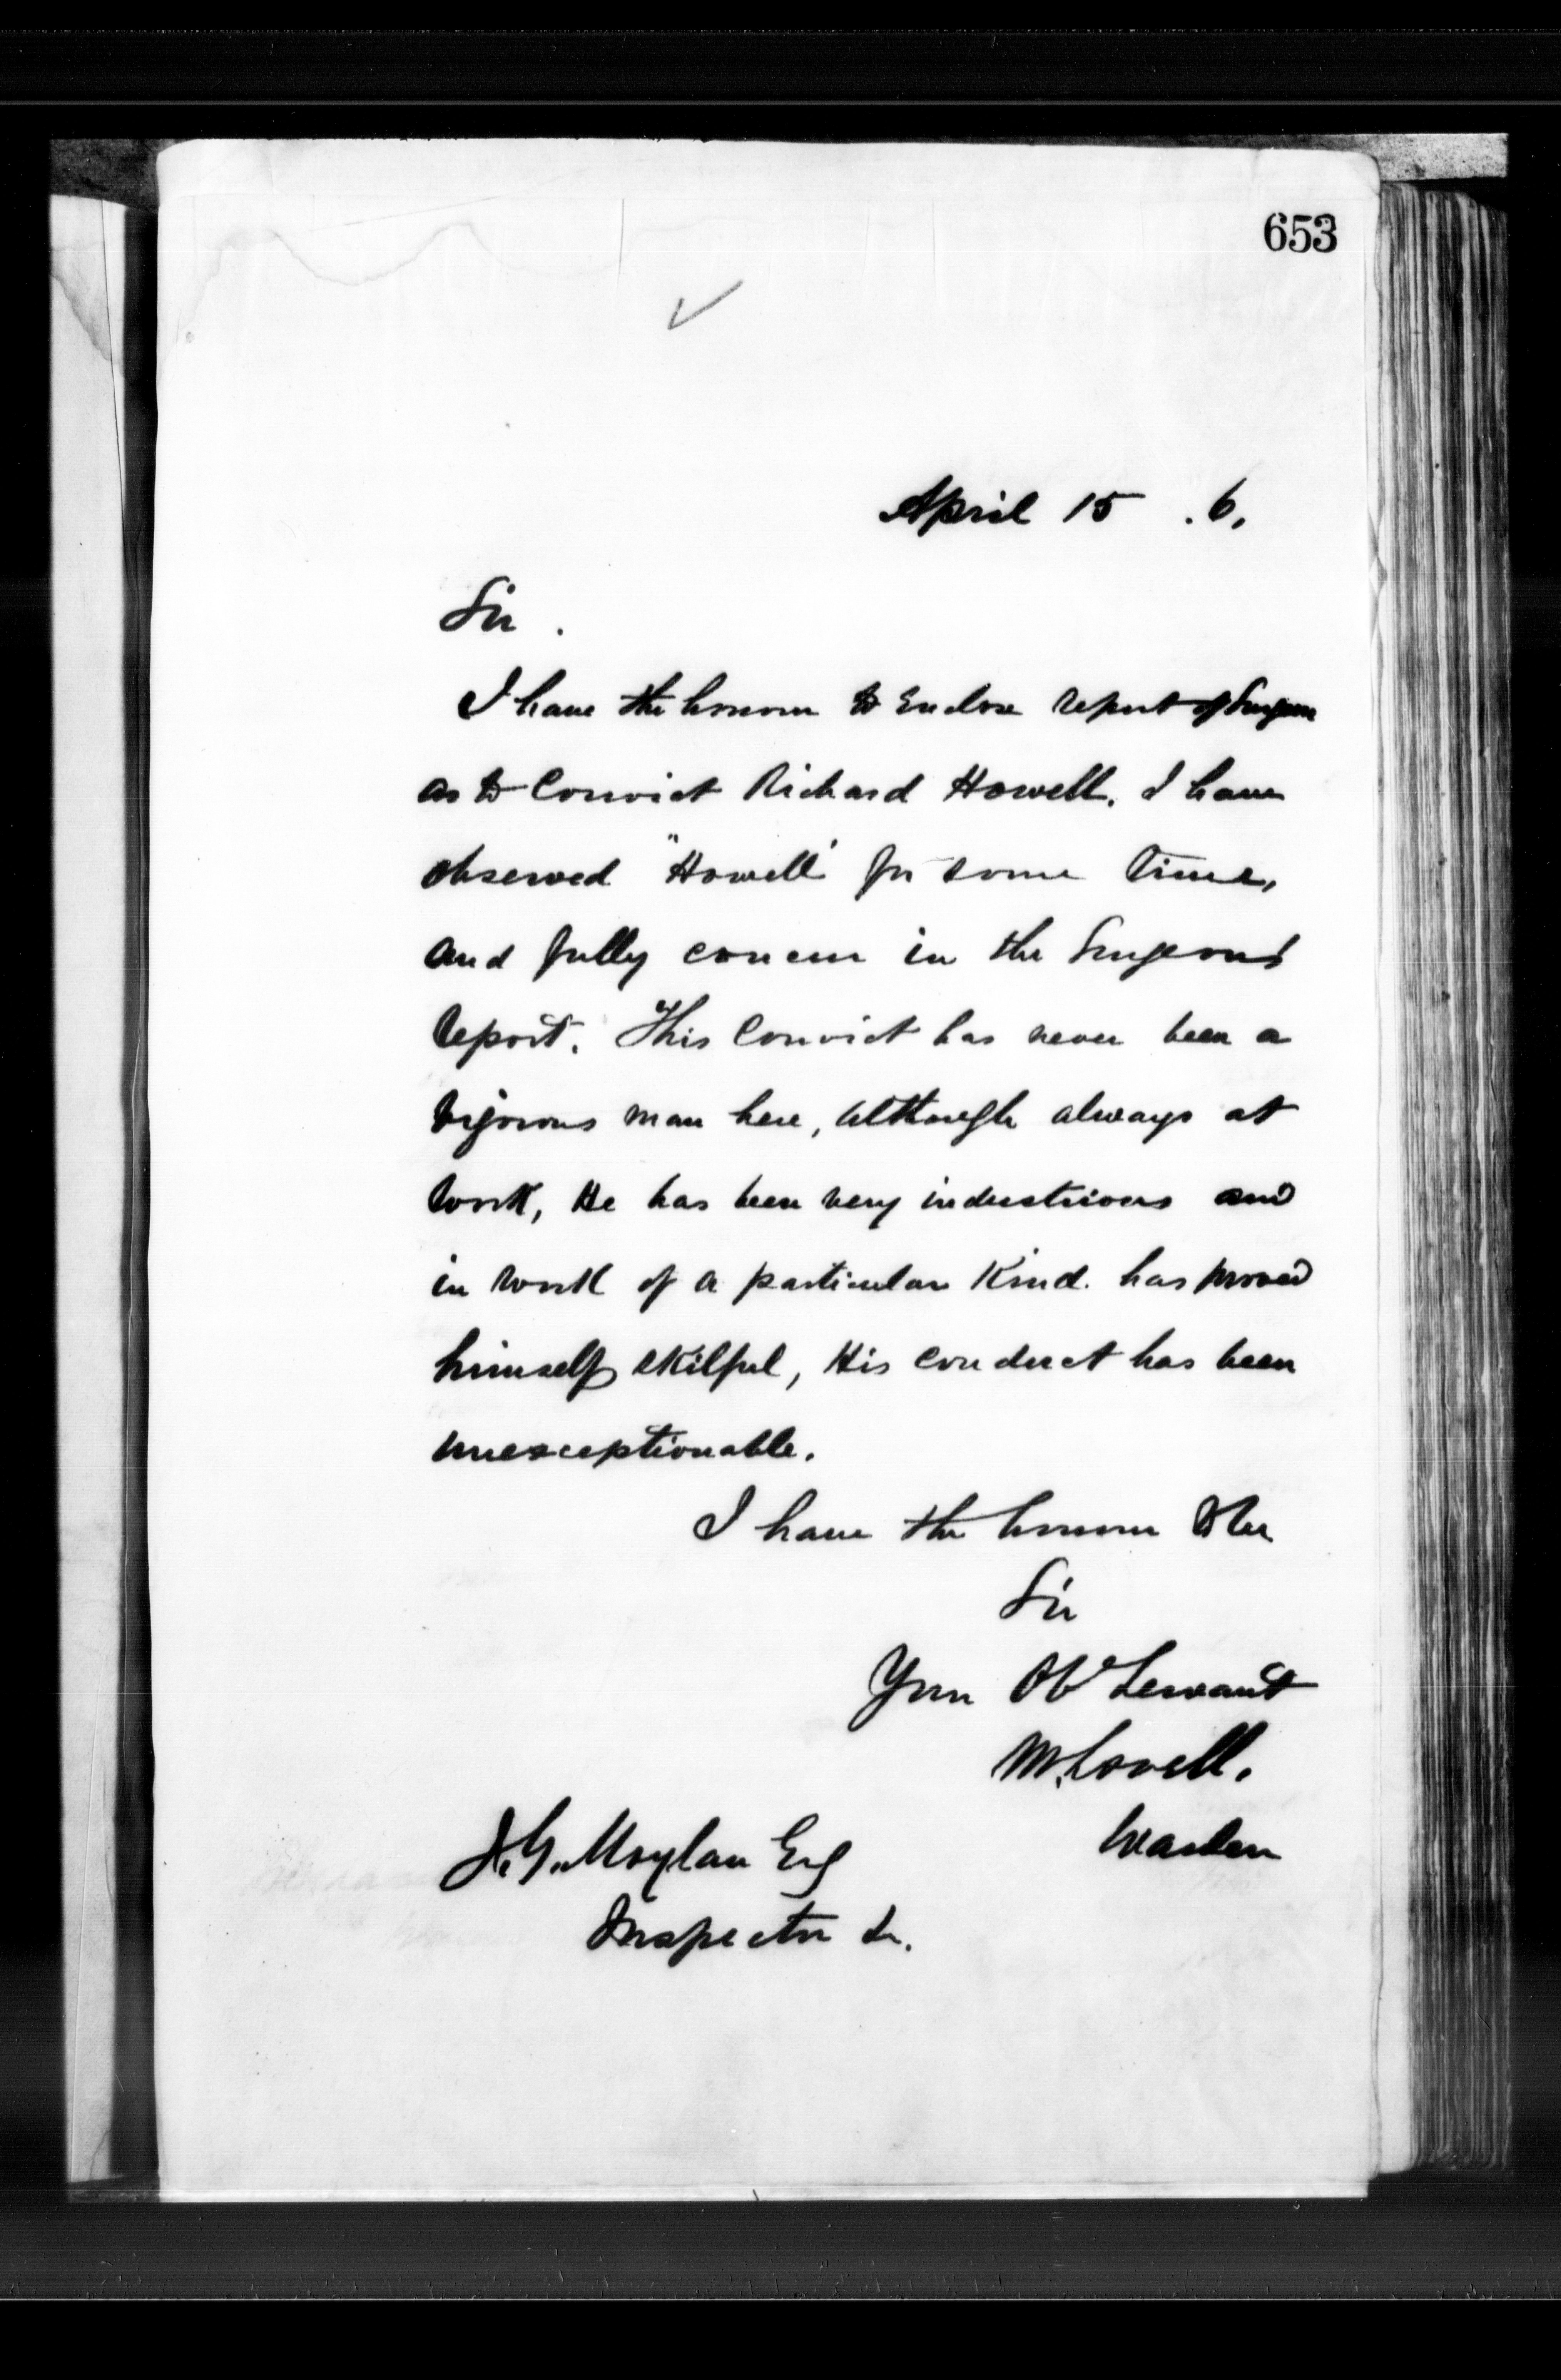 653
April 15 .6.
Sir.
I have the honour to enclose report of Surgeon
as to Convict Richard Howell. I have
observed "Howell" for some time,
and fully concur in the Surgeons
report. This Convict has never been a
vigorous man here, although always at
work, He has been very industrious and
in work of a particular kind. has proved
himself skilful, His conduct has been
unexceptionable.
I have the honour to be
Sir
Your Obt Servant
M. Lavell.
Warden
J. G. Moylan Esq
Inspector &c.